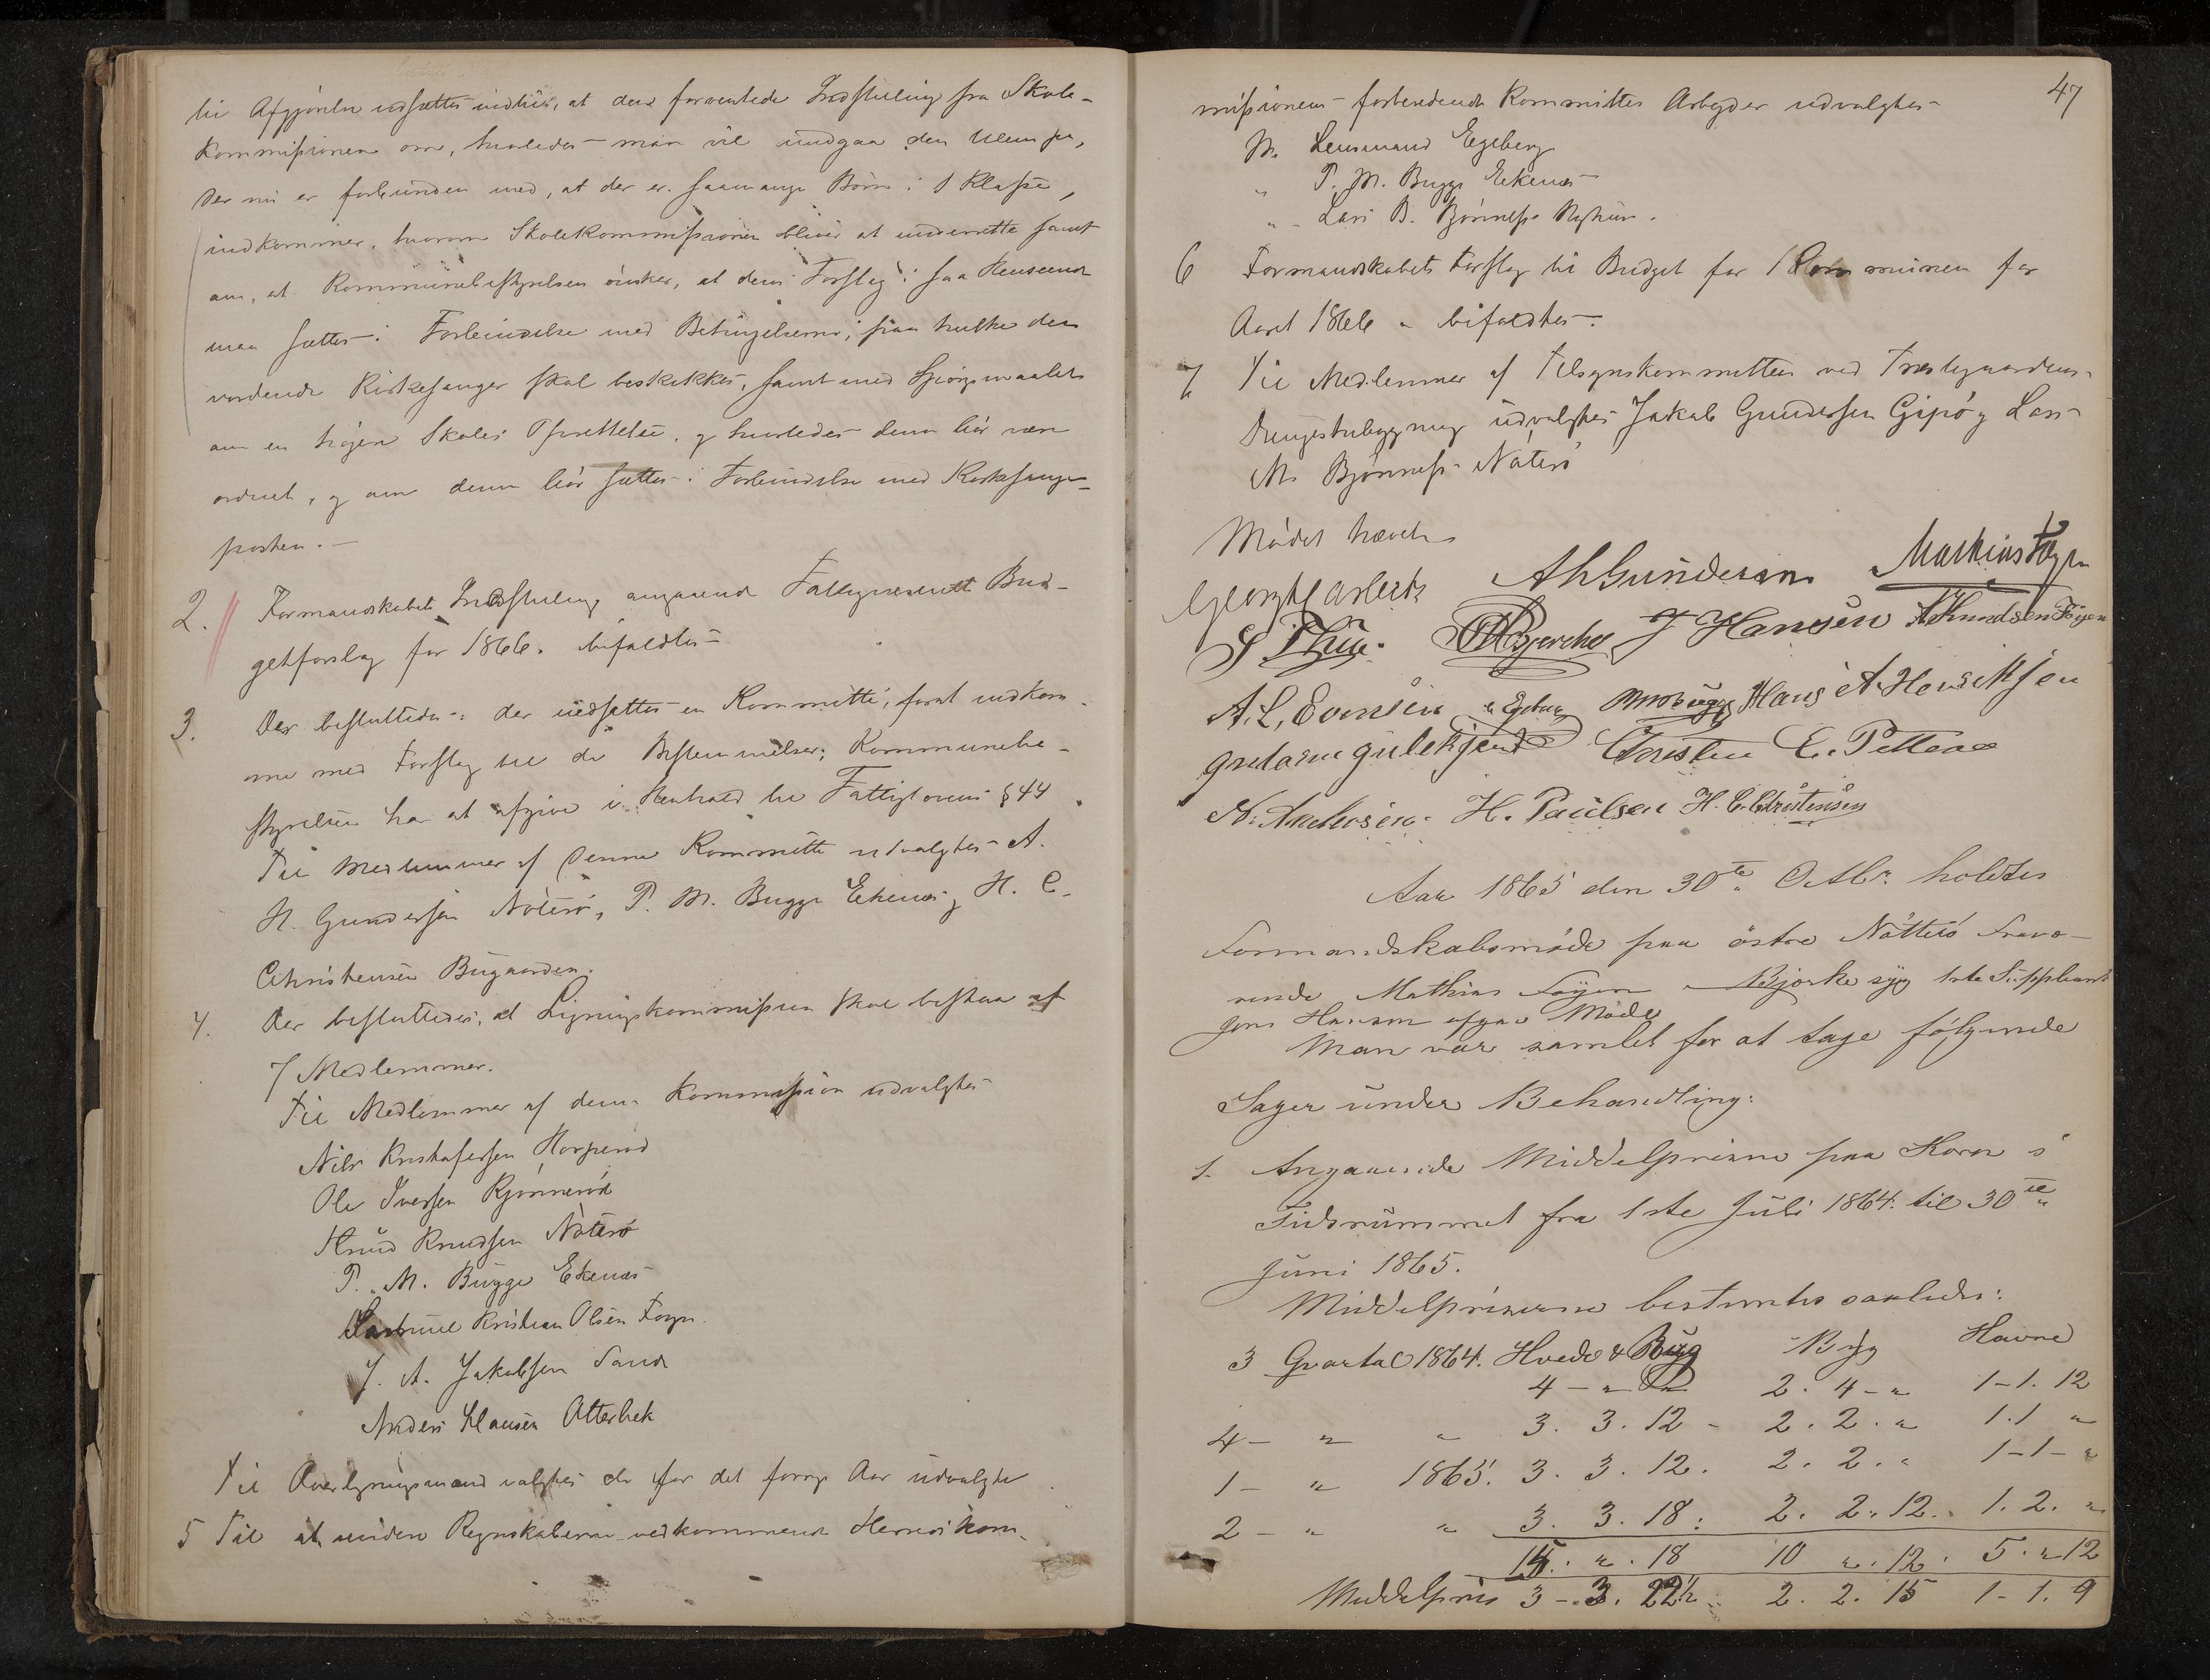 til Afgjørelse udsættes indtil, at den forventede Indstilling fra Skole-
kommissionen om, hvorledes man vil undgaa den Ulempe,
der nu er forbunden med, at der er saamange Børn i 1 Klasse,
indkommer, hvorom Skolekommissionen bliver at underrette samt
om, at Kommunebestyrelsen ønsker, at dens Forslag i saa Henseende
maa sættes i Forbindelse med Betingelserne, paa hvilke den
vordende Kirkesanger skal beskikkes, samt med Spørgsmaalet
om en høiere Skoles Oprettelse, og hvorledes denne bør være
ordnet, og om denne bør sættes i Forbindelse med Kirkesanger-
posten.—
2. Formandskabets Indstilling angaaende Fattigvæsenets Bud-
getforslag for 1866. bifaldtes
3. Der besluttedes: der nedsættes en Kommitte, forat indkom-
me med Forslag til de Bestemmelser, Kommunebe-
styrelsen har at afgive i Henhold til Fattiglovens § 44.
Til Medlemmer af denne Kommitte udvalgtes A.
H. Gundersen Nøterø, P. M. Bugge Ekenes og H. C.
Christensen Bugaarden.
4. Der besluttedes, at Ligningskommissionen skal bestaa af
7 Medlemmer.
Til Medlemmer af denne Kommission udvalgtes
Nils Kristofersen
Ole Iversen
Knud Knudsen Nøterø
P. M. Bugge Ekenes
Kristian Olsen Foyn.
J. A. Jakobsen Sand
Anders Hansen Otterbek
Til Overligningsmænd valgtes de for det forrige Aar udvalgte
5 Til at revidere Regnskaberne vedkommende Herredskom-
47
missionens forberedende Kommittes Arbeider udvalgtes
Hr. Lensmand Egeberg
" P. M. Bugge Ekenes
" Lars B. Bjønness
6 Formandskabets Forslag til Budget for Kommunen for
Aaret 1866 bifaldtes.
7 Til Medlemmer af Tilsynskommitteen ved Prestegaardens
udvalgtes Jakob Gundersen Gipø og Lars
M. Bjønness Nøterø
Mødet hævet
A H Gundersen Mathias Føyn
S Thue. O Bjerche J Hansen A Knudsen Føyen
A. L. Evensen Egeberg P M Bugge Hans A Henriksen
Christen E. Pettersen
N. Andersen. H. Paulsen H. C. Christensen
Aar 1865 den 30te Octbr. holdtes
Formandskabsmøde paa østre Nøtterø Fravæ-
rende Mathias Føyen Bjerke syg 1ste Suppleant
Jens Hansen afgav Møde
Man var samlet for at tage følgende
Sager under Behandling:
1. Angaaende Middelprisene paa Korn i
Tidsrummet fra 1ste Juli 1864. til 30te
Juni 1865.
Middelpriserne bestemtes saaledes:
3 Qvartal 1864. Hvede & Rug Byg Havre
4 - " 2. 4 - " 1-1. 12
4 - " " 3. 3. 12 - 2. 2. " 1.1 "
1 - " 1865. 3. 3. 12. 2. 2. " 1-1- "
2 - " " 3. 3. 18: 2. 2. 12. 1. 2. "
15. " . 18 10 " . 12. 5. " 12
Middelpris 3 - 3. 22½ 2. 2. 15 1 - 1. 9